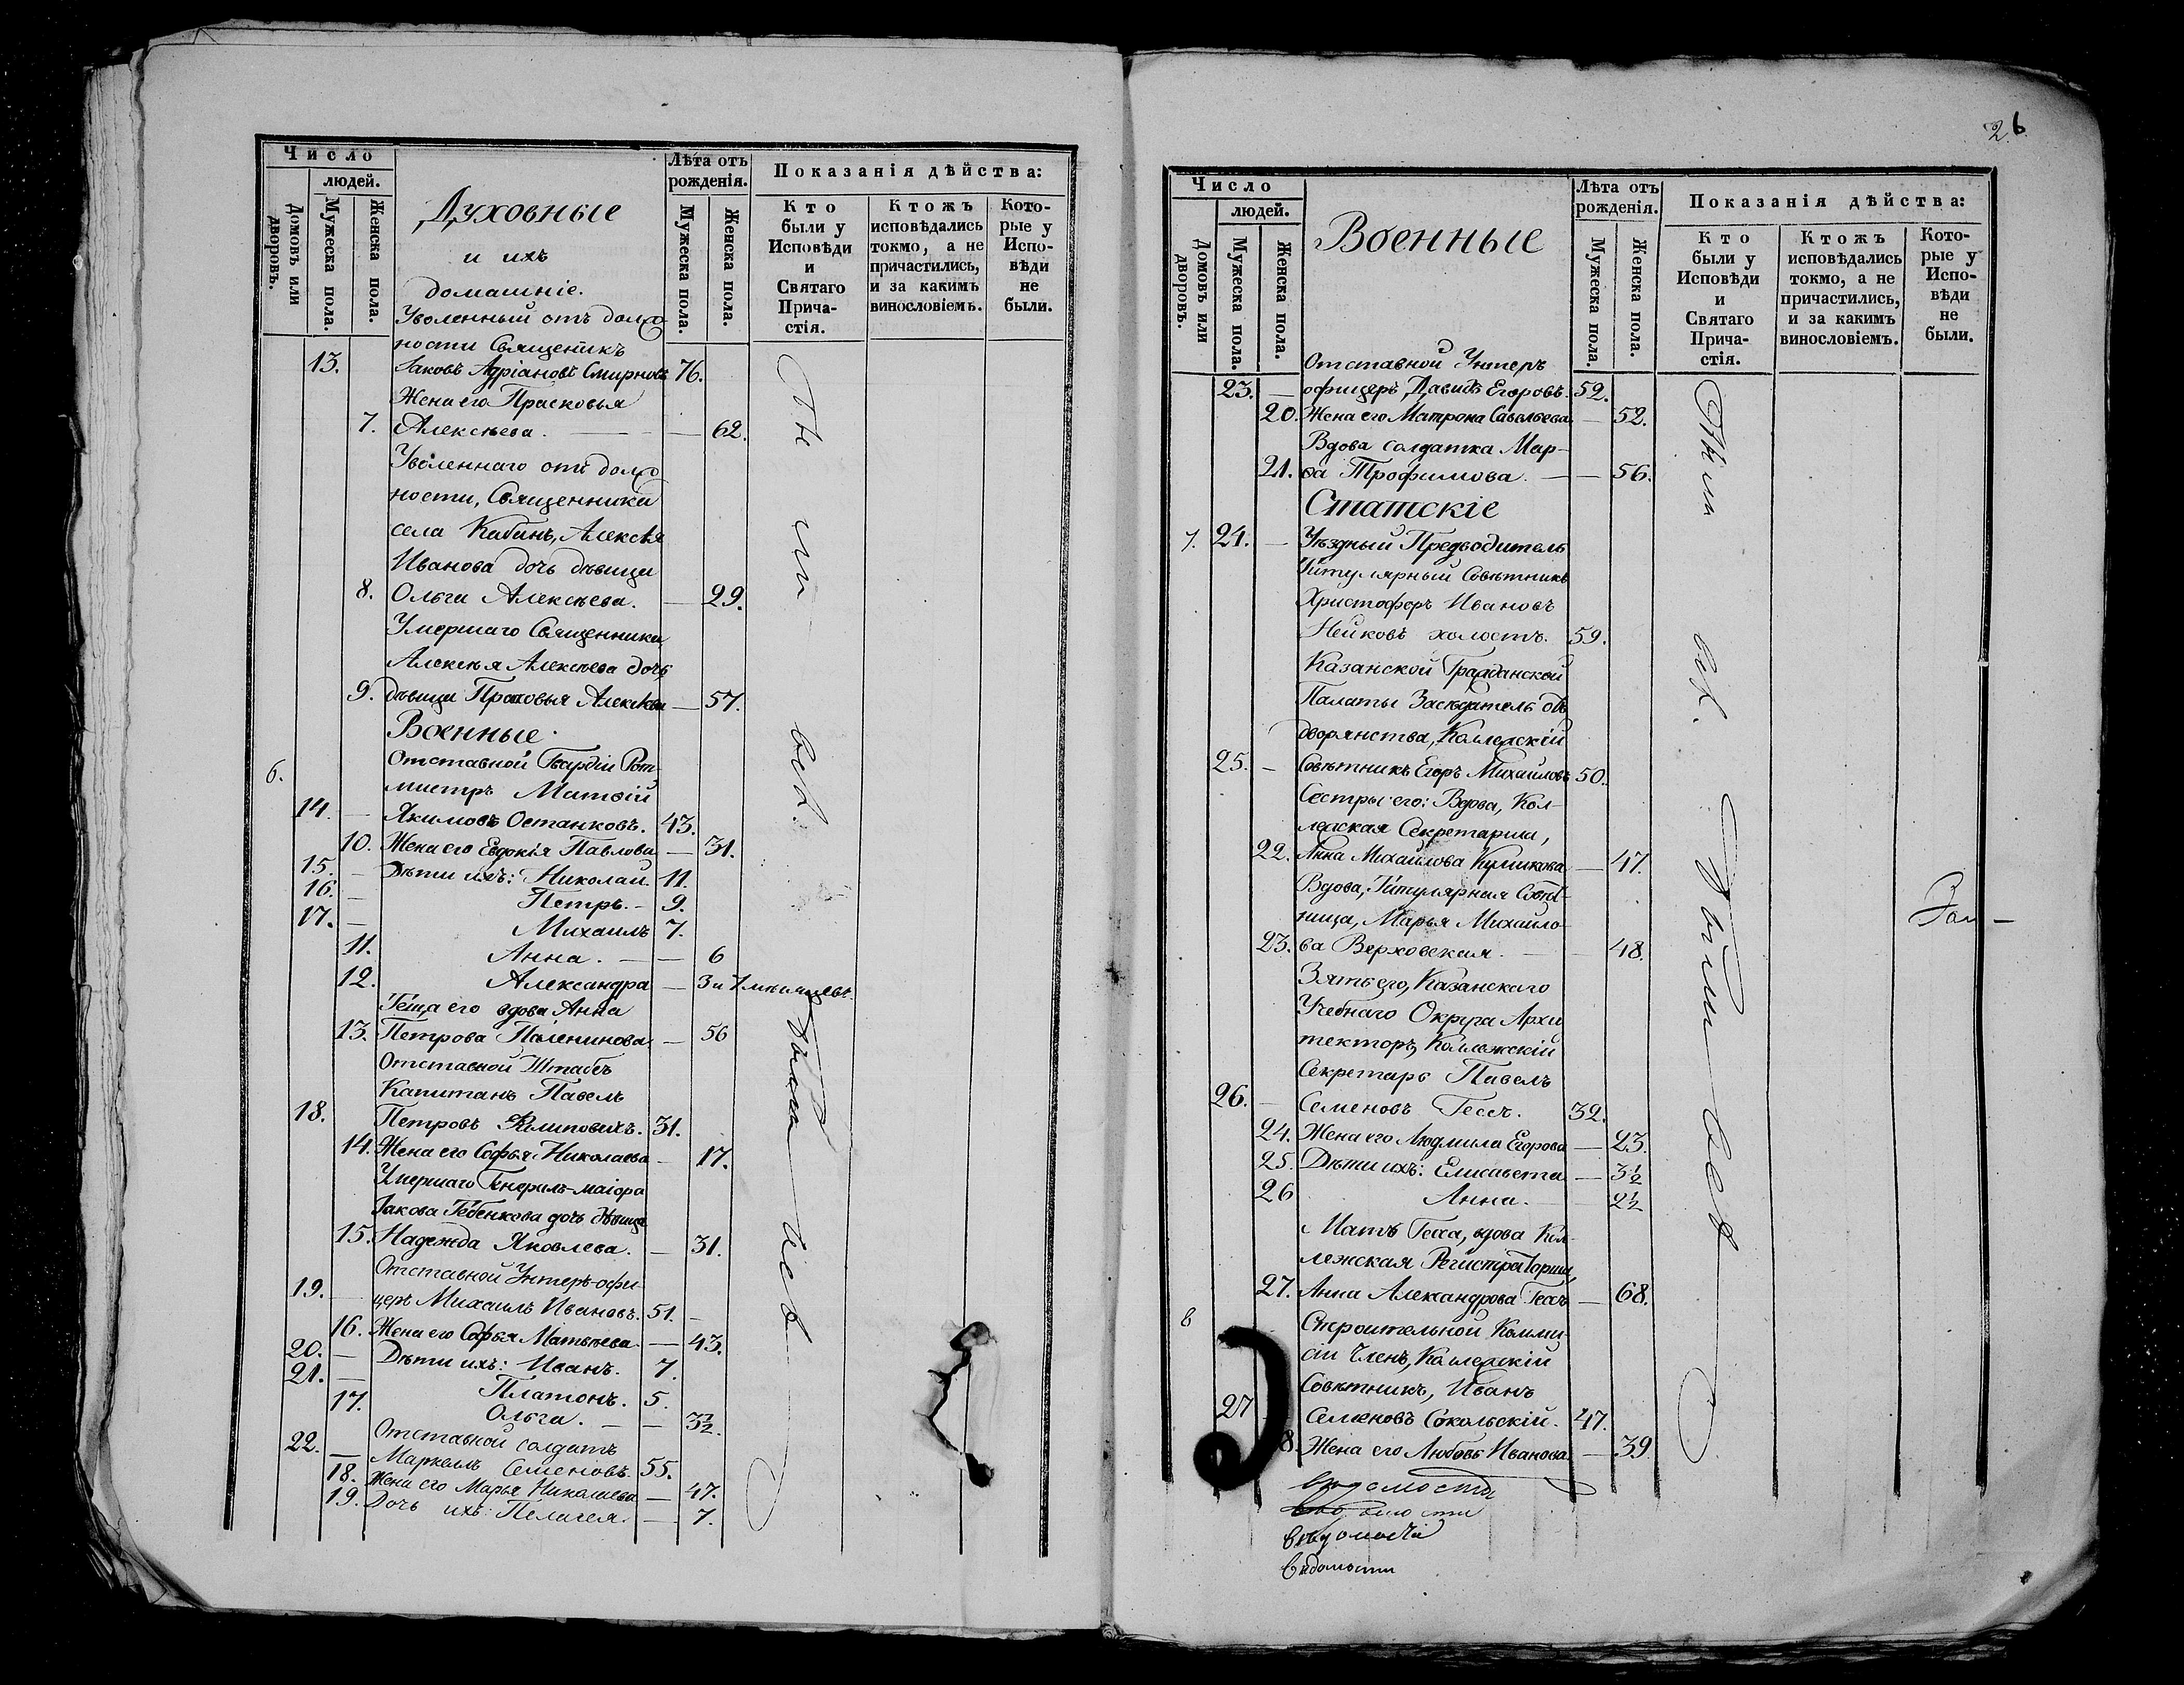 Число
людей.
Домовъ или дворовъ.
Мужеска пола.
Женска пола.
Духовные
и ихъ
домашніе.
Лѣта отъ рожденія.
Мужеска пола.
Женска пола.
Показанія дѣйства:
Кто были у Исповѣди и Святаго Прича-стія.
Ктожъ исповѣдались токмо, а не причастились, и за какимъ винословіемъ.
Кото-рые у Испо-вѣди не были.
Уволенный отъ долж
ности Священикъ
13. Іаковъ Адріановъ Смирновъ 76.
Жена его Прасковья
7. Алексѣева. — 62.
Уволеннаго отъ долж
ности, Священника
села Кабанъ, Алексѣя
Иванова дочь дѣвица
8. Ольга Алексѣева. — 29.
Умершаго Священника
Алексѣя Алексѣева дочь
9. дѣвица Прасковья Алексѣева — 57.
Военные.
6. Отставной Гвардіи Рот-
мистръ Матвій
14. — Якимовъ Останковъ. 43.
10. Жена его Евдокія Павлова — 31.
15. — Дѣти ихъ: Николай. 11.
16. — Петръ. — 9.
17. — Михаилъ 7.
11. Анна. — — 6
12. Александра — 3 и 7 мѣсяцевъ.
Теща его вдова Анна
13. Петрова Паленинова. — 56
Отставной Штабсъ
Капитанъ Павелъ
18. Петровъ Филиповичъ. 31.
14. Жена его Софья Николаева — 17.
Умершаго Генералъ-маіора
Іакова Гебенкова дочь дѣвица
15. Надежда Яковлева. — 31.
Отставной Унтеръ-офи-
19. — церъ Михаилъ Ивановъ. 51. —
16. Жена его Софья Матвѣева. — 43.
20. — Дѣти ихъ: Иванъ. 7.
21. — Платонъ. 5.
17. Ольга. — — 3½.
Отставной солдатъ
22. — Маркеллъ Семеновъ. 55.
18. Жена его Марья Николаева — 47.
19. Дочь ихъ: Пелагея. — 7.
Эти всѣ. были всѣ
26
Число
людей.
Домовъ или дворовъ.
Мужеска пола.
Женска пола.
Военные
Лѣта отъ рожденія.
Мужеска пола.
Женска пола.
Показанія дѣйства:
Кто были у Исповѣди и Святаго Прича-стія.
Ктожъ исповѣдались токмо, а не причастились, и за какимъ винословіемъ.
Кото-рые у Испо-вѣди не были.
Отставной Унтеръ
23. — офицеръ Давидъ Егоровъ. 52.
20. Жена его Матрона Савельева — 52.
Вдова солдатка Мар-
21. ѳа Трофимова. — — 56.
Статскіе
7. 24. — Уѣздный Предводитель
Титулярный Совѣтникъ
Христофоръ Ивановъ
Нейковъ холостъ. 59.
Казанской Гражданской
Палаты Засѣдатель отъ
дворянства, Коллежскій
25. — Совѣтникъ Егоръ Михайловъ 50.
Сестры его: Вдова, Кол-
лежская Секретарша,
22. Анна Михайлова Куликова — 47.
Вдова, Титулярная Совѣт-
ница, Марья Михайло-
23. ва Верховская. — — 48.
Зять его, Казанскаго
Учебнаго Округа Архи
текторъ, Коллежскій
Секретарь Павелъ
26. — Семеновъ Гессъ. 32.
24. Жена его Людмила Егорова — 23.
25. Дѣти ихъ: Елисавета — 3½
26 Анна. — 2½
Мать Гесса, вдова Кол-
лежская Регистраторша,
27. Анна Александрова Гессъ — 68.
8 Строительной Комми-
сіи Членъ, Коллежскій
Совѣтникъ, Иванъ
27 Семеновъ Сокольскій. 47.
8. Жена его Любовь Иванова. — 39
Эти всѣ. были всѣ
вѣдомости
вѣдомости